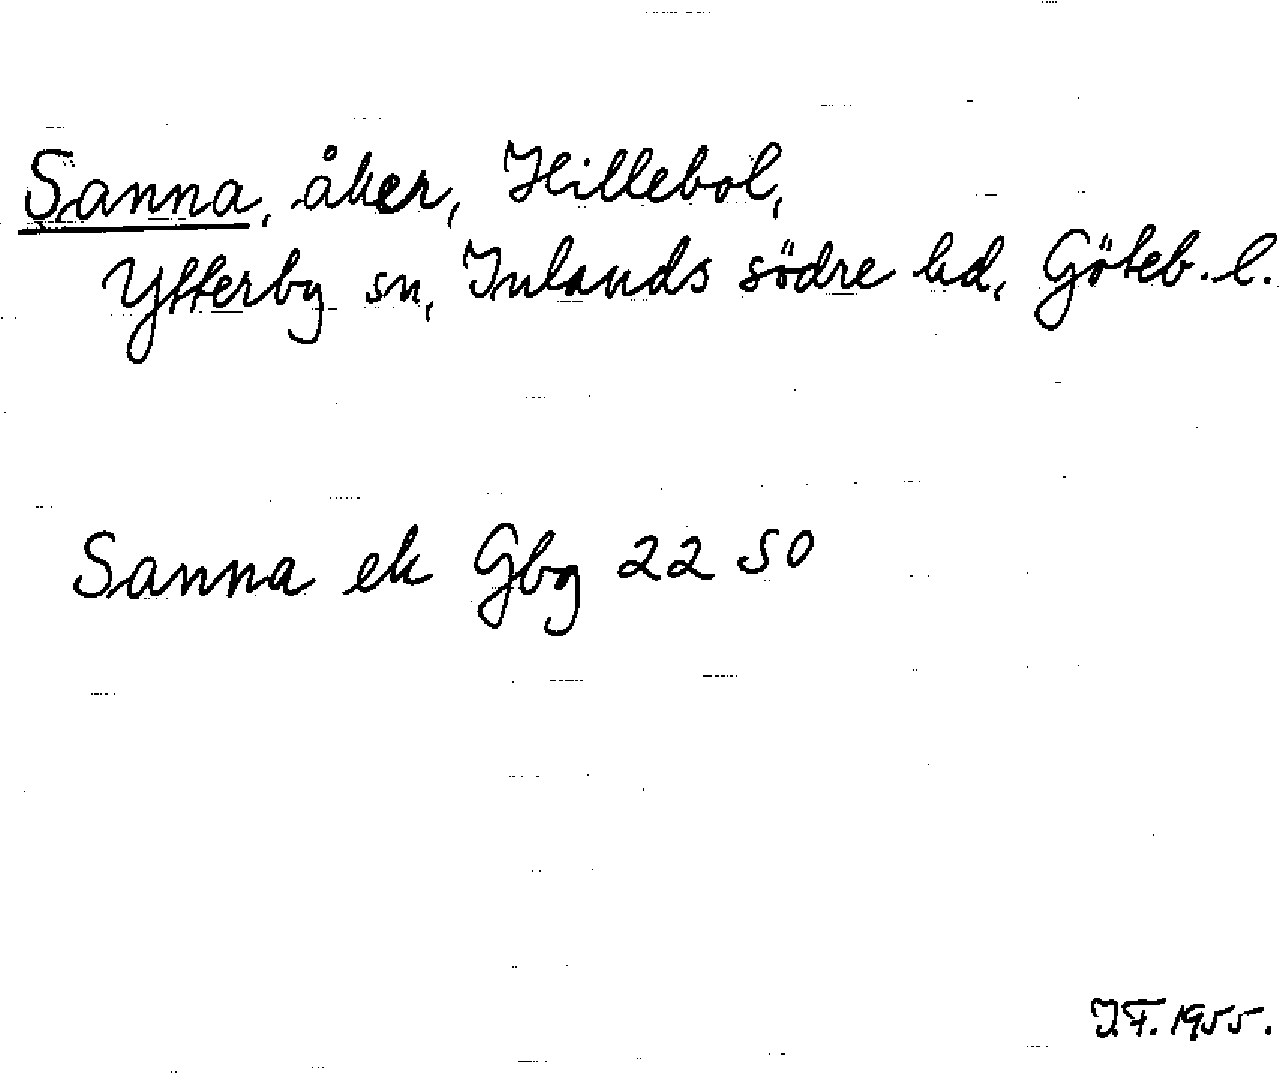 Sanna, åker, Hillebol,
Ytterby sn, Inlands södre hd, Göteb. l.
Sanna ek Gbg 22 50
I.F. 1955.